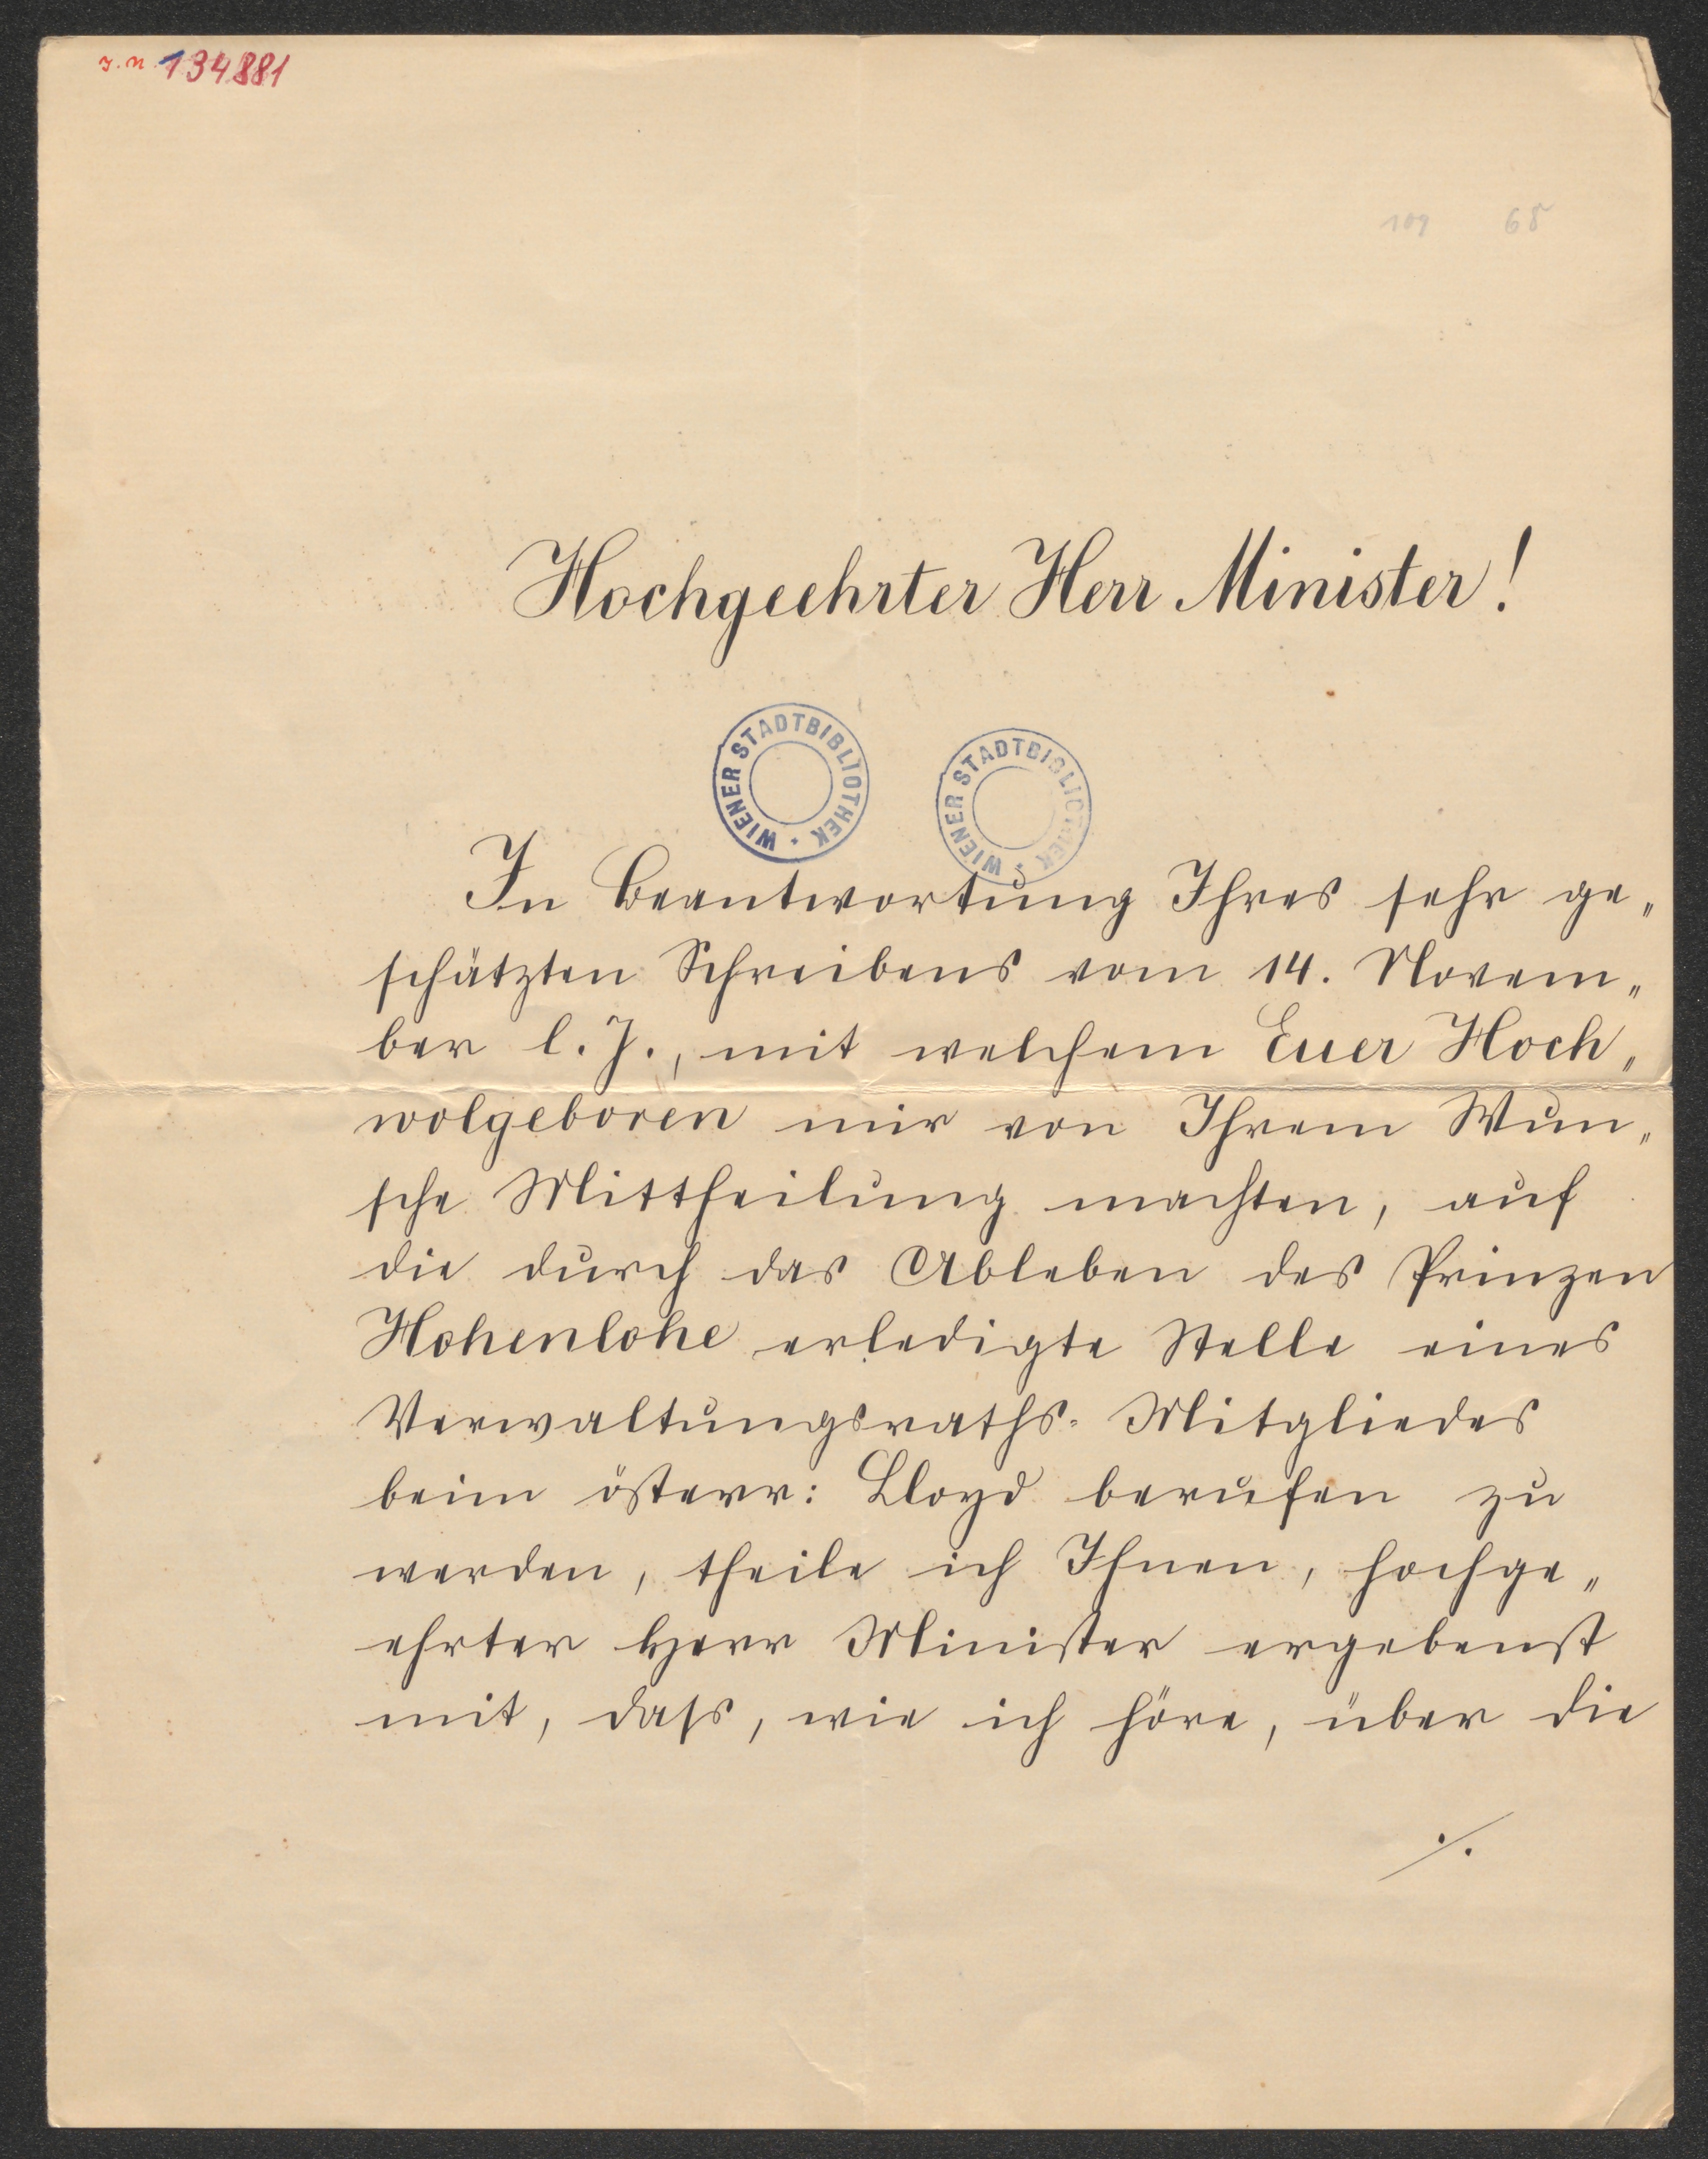 J. N. 134881
109 65
Hochgeehrter Herr Minister!
WIENER STADTBIBLIOTHEK
WIENER STADTBIBLIOTHEK
In Beantwortung Ihres sehr ge„
schätzten Schreibens vom 14. Novem„
ber l. J., mit welchem Euer Hoch„
wolgeboren mir von Ihrem Wun„
sche Mittheilung machten, auf
die durch das Ableben des Prinzen
Hohenlohe erledigte Stelle eines
Verwaltungsraths-Mitgliedes
beim österr: Lloyd berufen zu
werden, theile ich Ihnen, hochge„
ehrter Herr Minister ergebenst
mit, dass, wie ich höre, über die
./.